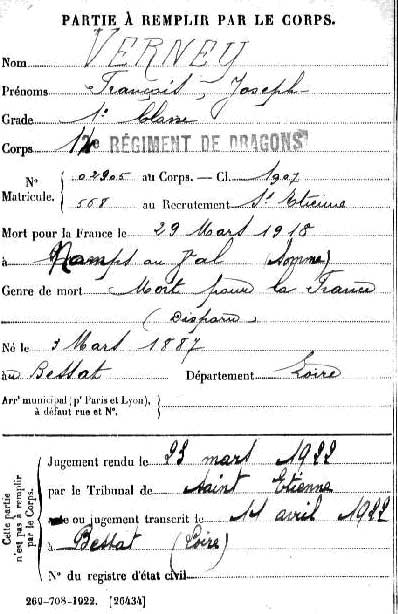 PARTIE À REMPLIR PAR LE CORPS.
Nom VERNEY
Prénoms François, Joseph
Grade 1e Classe
Corps RÉGIMENT DE DRAGONS
No Matricule. 02905 au Corps. — Cl. 1907
568 au Recrutement St Etienne
Mort pour la France le 29 Mars 1918
à Namps au Val (Somme)
Genre de mort Mort pour la France
(Disparu)
Né le 3 Mars 1887
au Bessat Département Loire
Arrt municipal (pr Paris et Lyon),
à défaut rue et No.
Cette partie n'est pas à remplir par le Corps.
Jugement rendu le 23 mars 1922
par le Tribunal de Saint Etienne
ou jugement transcrit le 11 avril 1922
à Bessat (Loire)
No du registre d'état civil
260-708-1922. [26434]